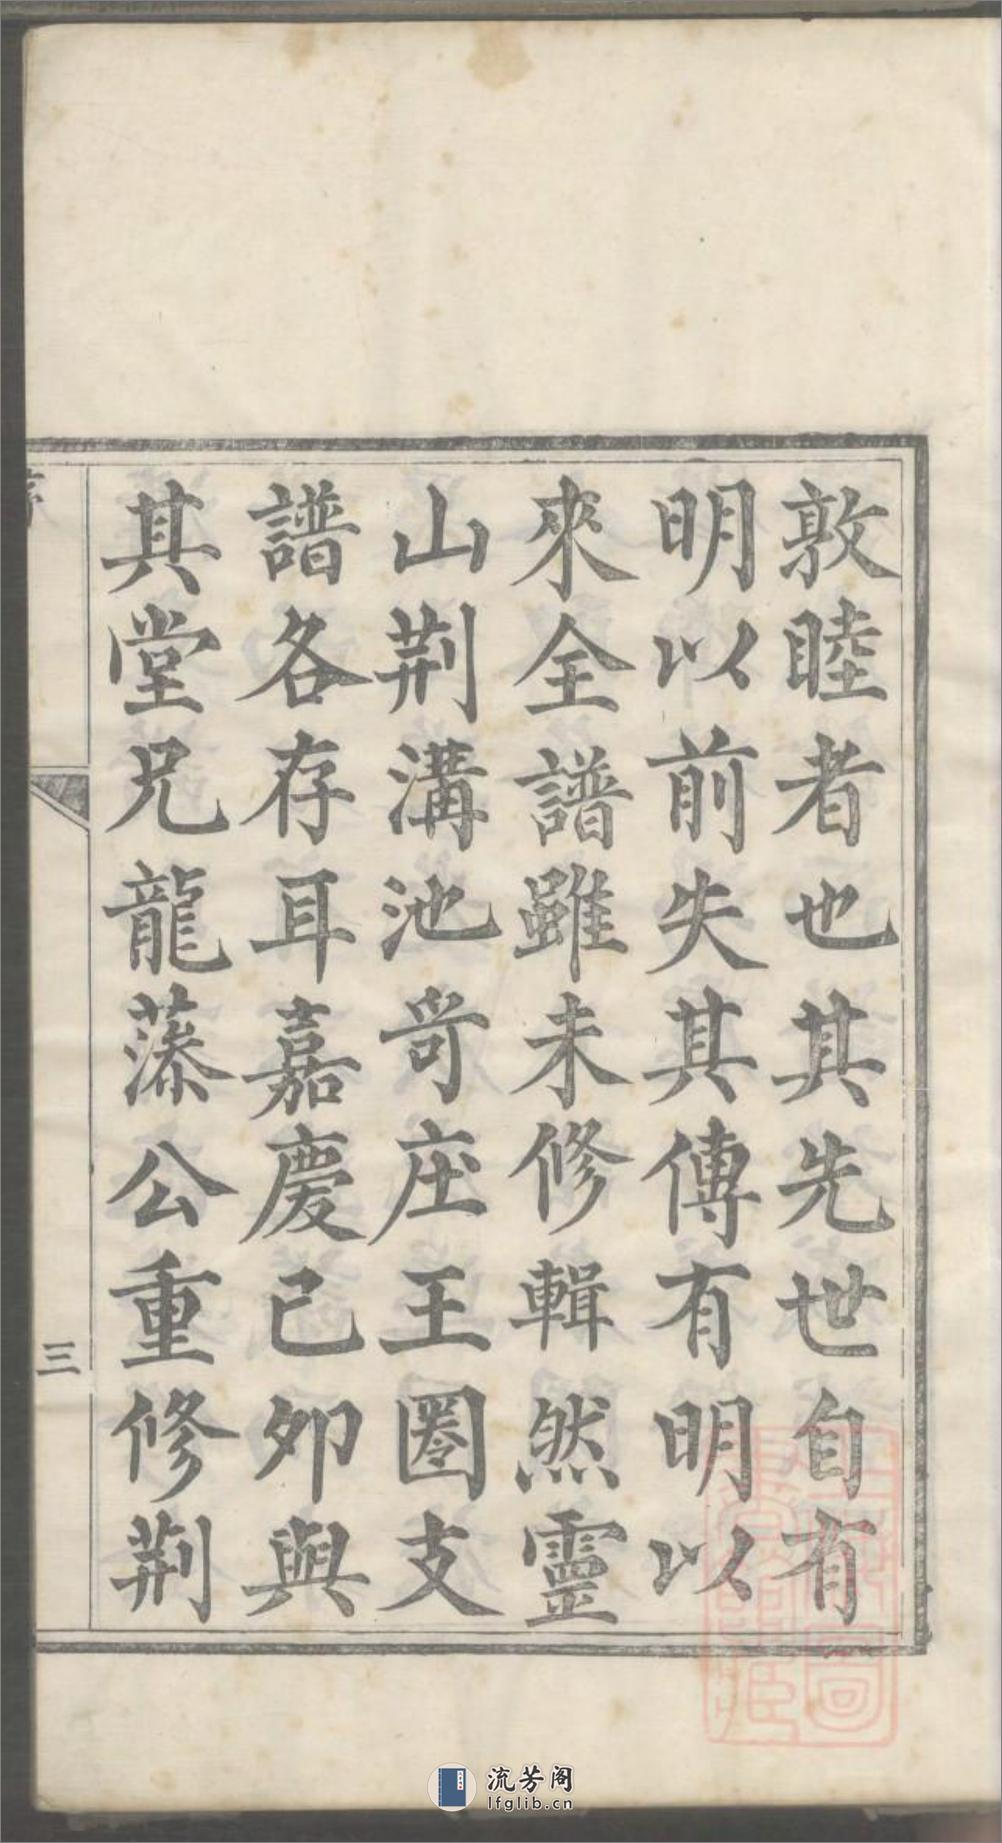 敦睦者也其先世自有
明以前失其傳有明以
來全譜雖未修輯然靈
山荆溝池奇庄王圈支
譜各存耳嘉慶己卯與
其堂兄龍藻公重修荆
三
流芳阁
lfglib.cn